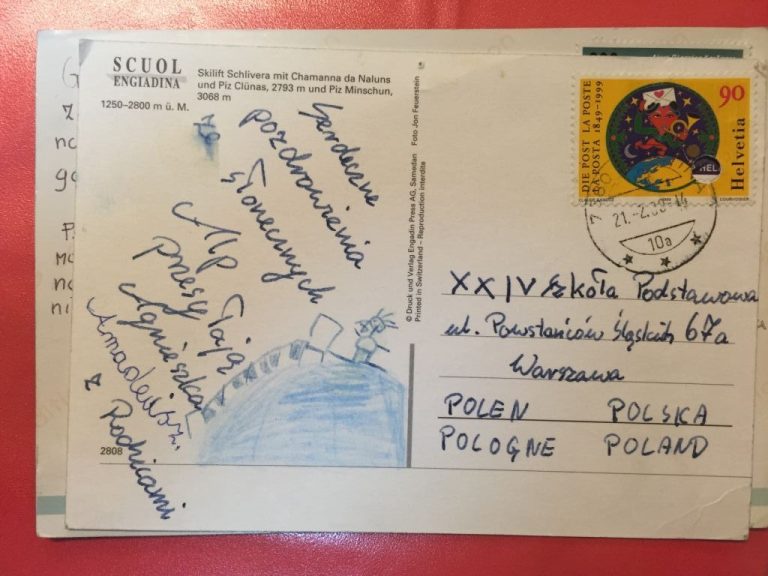 SCUOL
ENGIADINA
1250–2800 m ü. M.
Skilift Schlivera mit Chamanna da Naluns
und Piz Clünas, 2793 m und Piz Minschun,
3068 m
Serdeczne
pozdrowienia
ze
słonecznych
Alp
przesyłają
Agnieszka
Amadeusz.
z Rodzicami
2808
© Druck und Verlag Engadin Press AG, Samedan Foto Jon Feuerstein
Printed in Switzerland – Reproduction interdite
DIE POST LA POSTE
LA POSTA 1849-1999
90
HEL
Helvetia
21.-2.00-14
10a
XXIV Szkoła Podstawowa
ul. Powstańców Śląskich 67a
Warszawa
POLEN POLSKA
POLOGNE POLAND